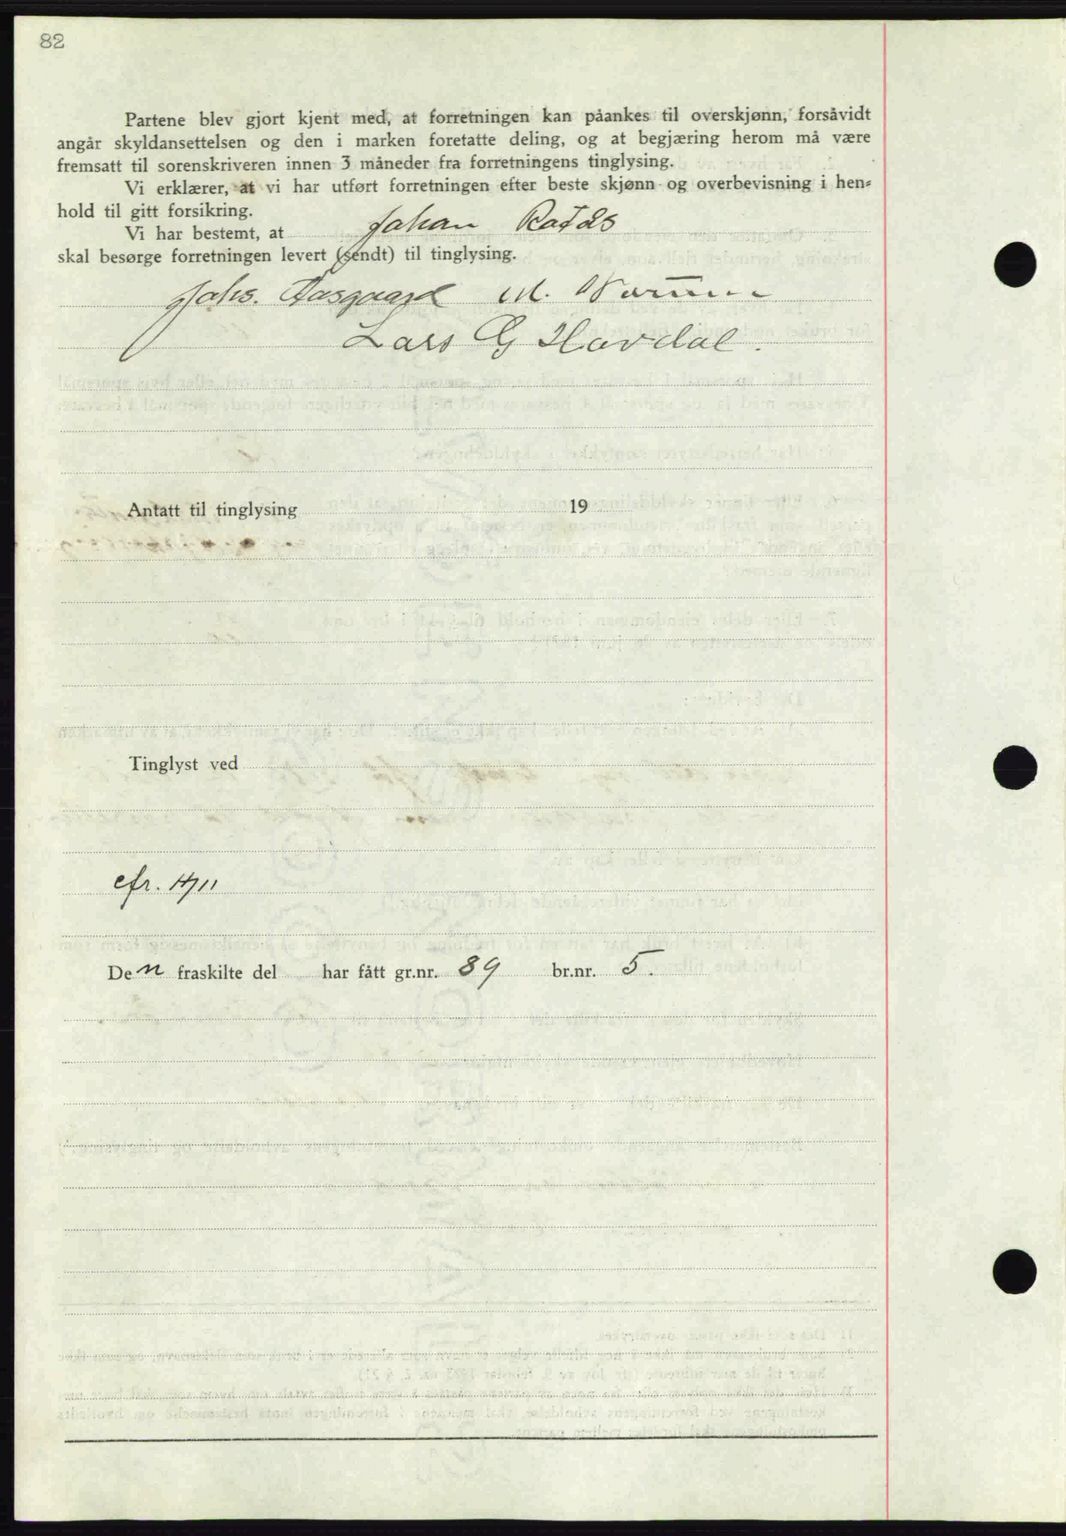 82
Partene blev gjort kjent med, at forretningen kan påankes til overskjønn, forsåvidt
angår skyldansettelsen og den i marken foretatte deling, og at begjæring herom må være
fremsatt til sorenskriveren innen 3 måneder fra forretningens tinglysing.
Vi erklærer, at vi har utført forretningen efter beste skjønn og overbevisning i hen-
hold til gitt forsikring.
Vi har bestemt, at Johan
skal besørge forretningen levert (sendt) til tinglysing.
Johs. Aasgaard M.
Lars G Hovdal.
Antatt til tinglysing 19
Tinglyst ved
cfr.
Den fraskilte del har fått gr.nr. 89 br.nr. 5.